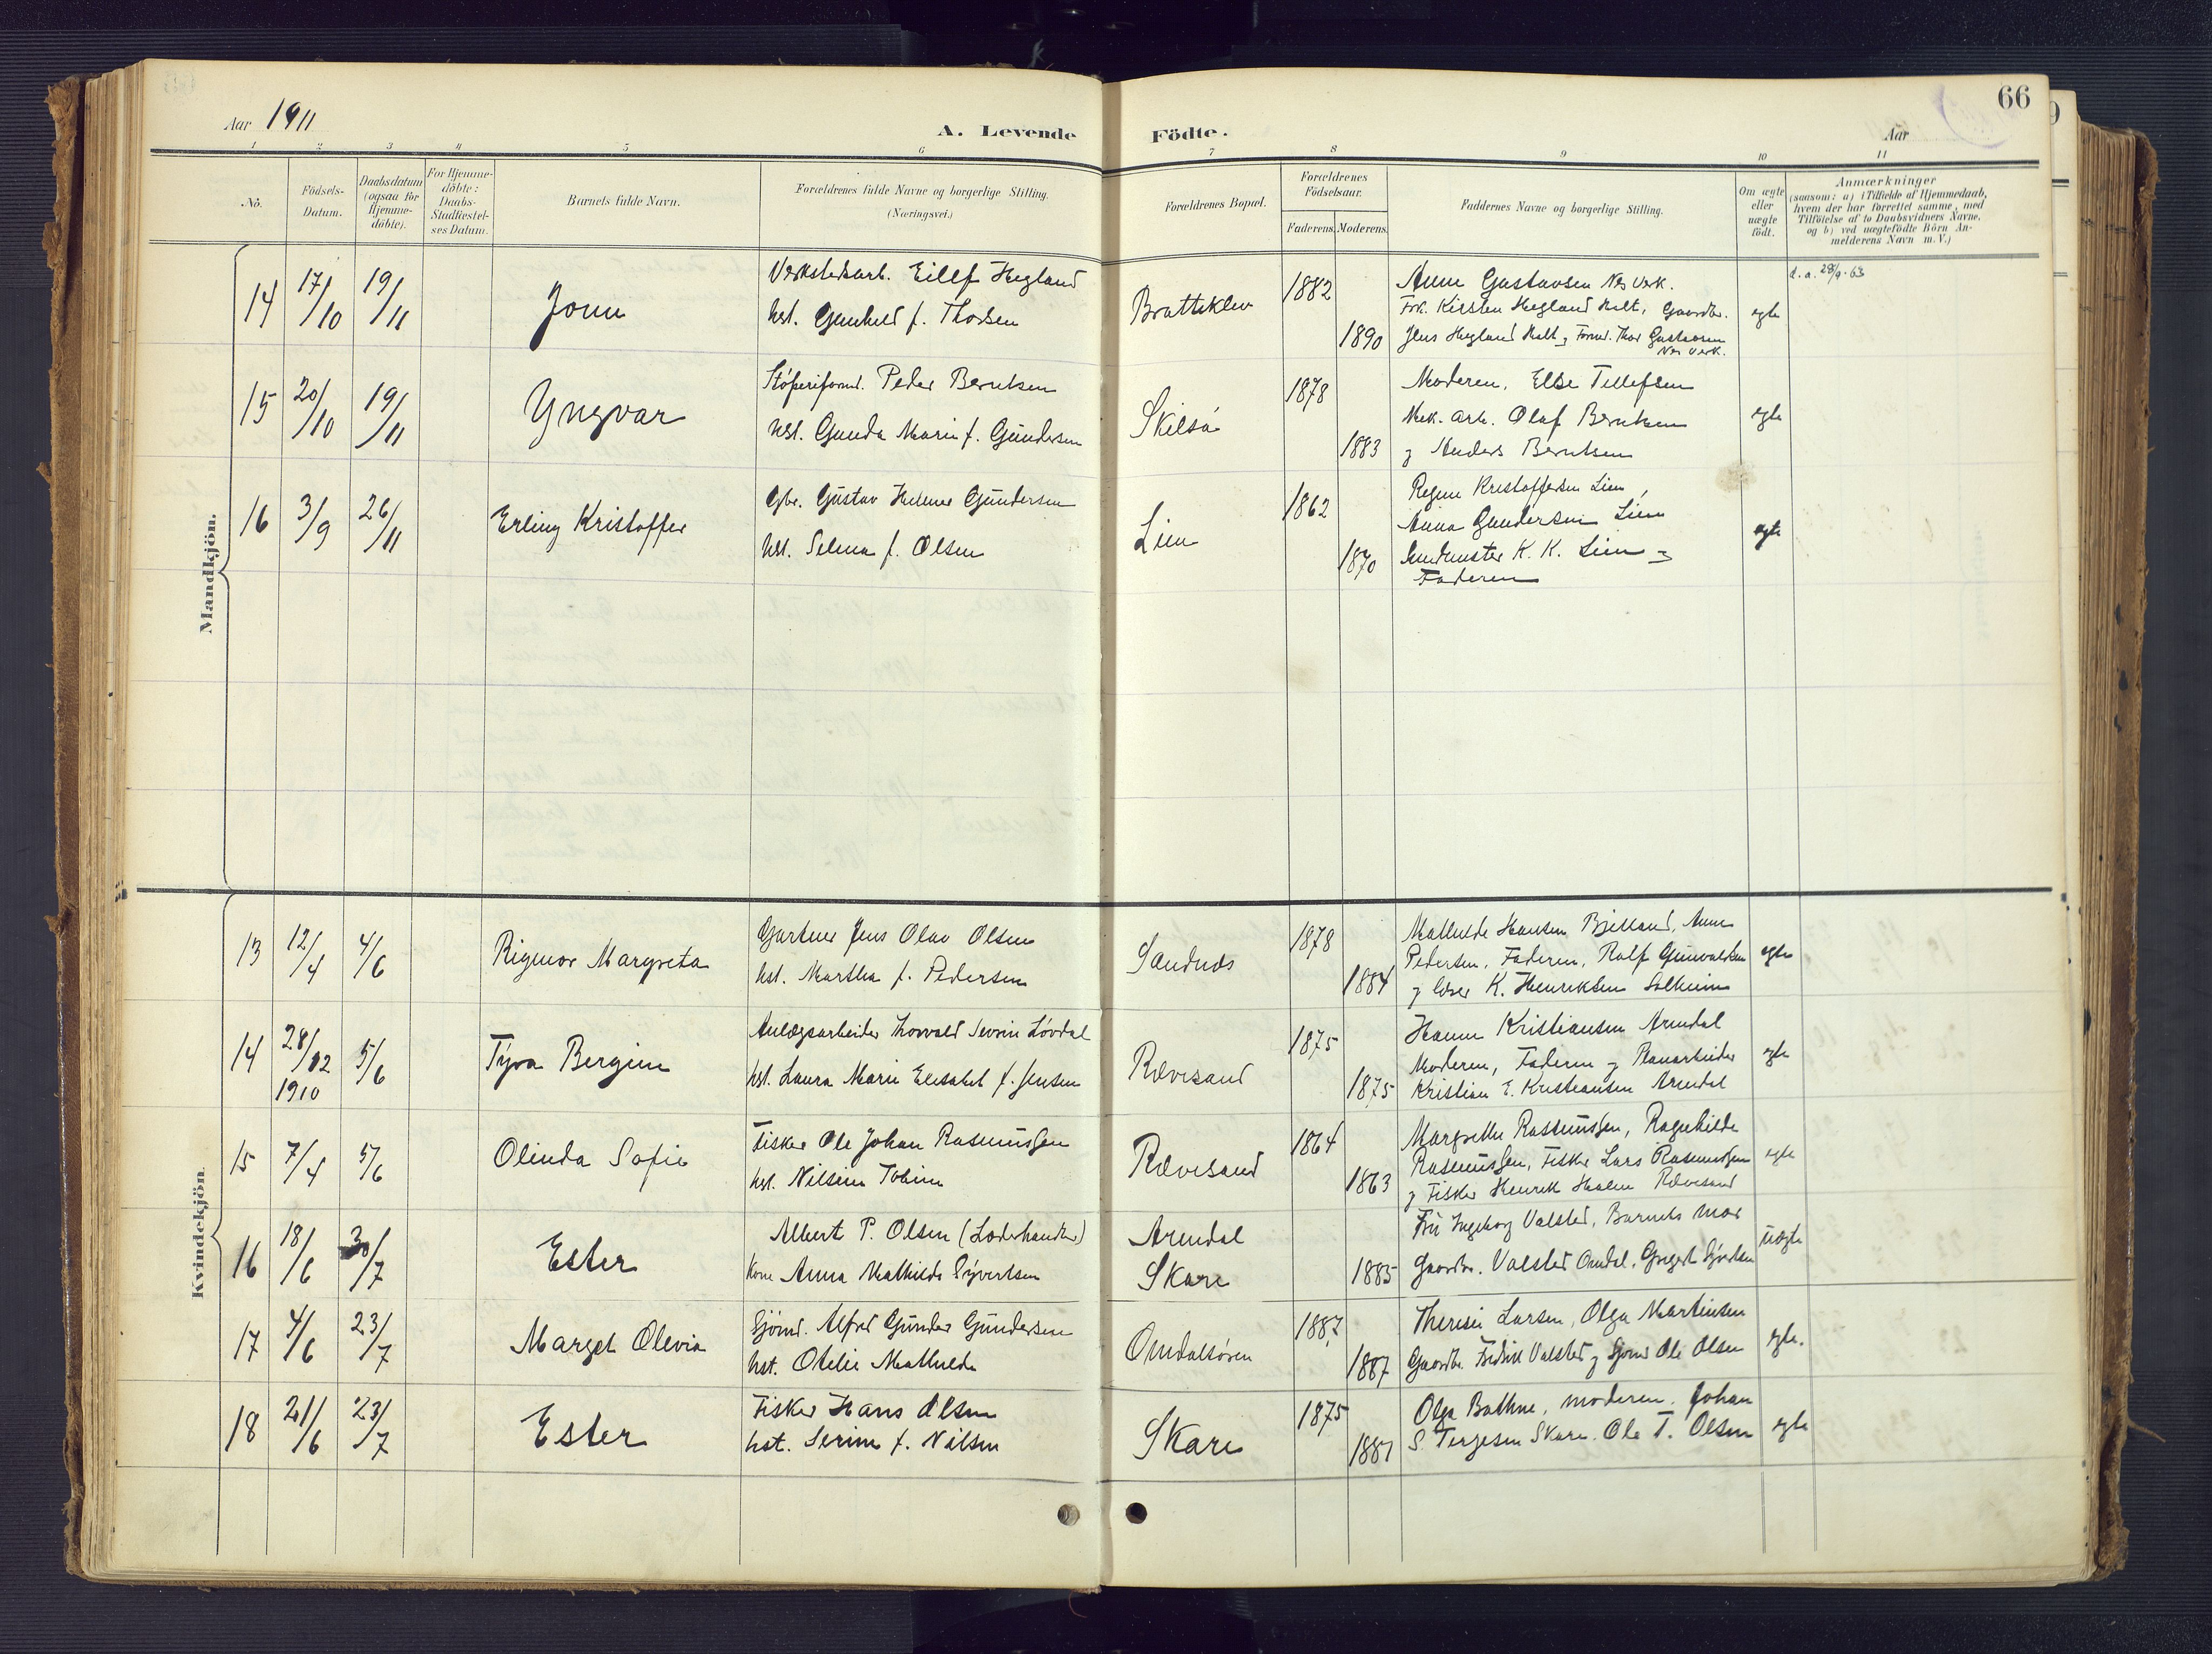 66
Aar 1911
A. Levende Födte.
Aar
1 2 3 4 5 6 7 8 9 10 11
No.
Födsels-Datum.
Daabsdatum (ogsaa for Hjemme-döbte).
For Hjemme-döbte: Daabs-Stadfæstel-ses Datum.
Barnets fulde Navn.
Forældrenes fulde Navne og borgerlige Stilling. (Næringsvei.)
Forældrenes Bopæl.
Forældrenes Födselsaar.
Faderens. Moderens.
Faddernes Navne og borgerlige Stilling.
Om ægte eller uægte födt.
Anmærkninger
(saasom: a) i Tilfælde af Hjemmedaab, hvem der har forrettet samme, med Tilföielse af to Daabsvidners Navne, og b) ved uægtefödte Börn An-melderens Navn m. V.)
Mandkjön.
14 17/10 19/11 Jonn
Verkstedsarb. Eilef Hegland
hst. Gunhild f. Thorsen
Bratteklev 1882 1890
Anne Gustavsen Nes Verk.
Frk. Kirsten Hegland Holt, Gaardbr.
Jens Hegland Holt og Formd. Thor Gustavsen
Nes Verk.
egte
d.a. 28/9-63
15 20/10 19/11 Yngvar
Støperiformd. Peder Berntsen
hst. Gunda Marie f. Gundersen
Skilsø 1878 1883
Moderen, Else Tellefsen
Mek. arb. Olaf Berntsen
og Anders Berntsen
egte
16 3/9 26/11 Erling Kristoffer
Gbr. Gustav Helmer Gundersen
hst. Selma f. Olsen
Lien 1862 1870
Regine Kristoffersen Lien,
Anna Gundersen Lien
K. K. Lien og
Faderen
egte
Kvindekjön.
13 12/4 4/6 Rigmor Margreta
Gartner Jens Olav Olsen
hst. Martha f. Pedersen
Sandnes 1878 1884
Mathilde Hansen Bjelland, Anne
Pedersen, Faderen, Ralf Gunvaldsen
og K. Henriksen Solheim
egte
14 28/12 1910 5/6 Tyra Bergine
Anlægsarbeider Thorvald Severin Løvdal
hst. Laura Marie Elisabet f. Jensen
Rævesand 1875 1875
Hanne Kristiansen Arendal
Moderen, Faderen og
Kristian E. Kristiansen Arendal
egte
15 7/4 5/6 Olinda Sofie
Fisker Ole Johan Rasmussen
hst. Nilsine Tobine
Rævesand 1864 1863
Margrethe Rasmussen, Ragnhilde
Rasmussen, Fisker Lars Rasmussen
og Fisker Henrik Rævesand
egte
16 18/6 30/7 Ester
Albert P. Olsen (Læderhandler)
Kone Anna Mathilde Syvertsen
Arendal
Skare 1885
Fru Ingeborg Valsted, Barnets mor
Gaardbr. Valsted Omdal,
uægte
17 4/6 23/7 Marget Olevia
Sjømd. Alfred Gunder Gundersen
hst. Otelie Mathilde
Omdalsøren 1887 1887
Theresie Larsen, Olga Martinsen
Gaardbr. Fredrik Valsted og Sjømd Ole Olsen
egte.
18 21/6 23/7 Ester
Fisker Hans Olsen
hst. Serine f. Nilsen
Skare 1875 1881
Olga moderen. Johan
S. Terjesen Skare. Ole T. Olsen
egte